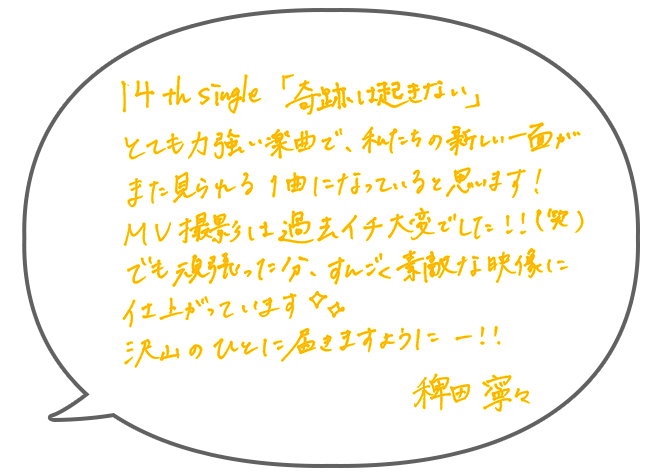 14th single「奇跡は起きない」
とても力強い楽曲で、私たちの新しい一面が
また見られる1曲になっていると思います!
MV撮影は過去イチ大変でした!!(笑)
でも頑張った分、すんごく素敵な映像に
仕上がっています✧✧
沢山のひとに届きますようにー!!
稗田寧々